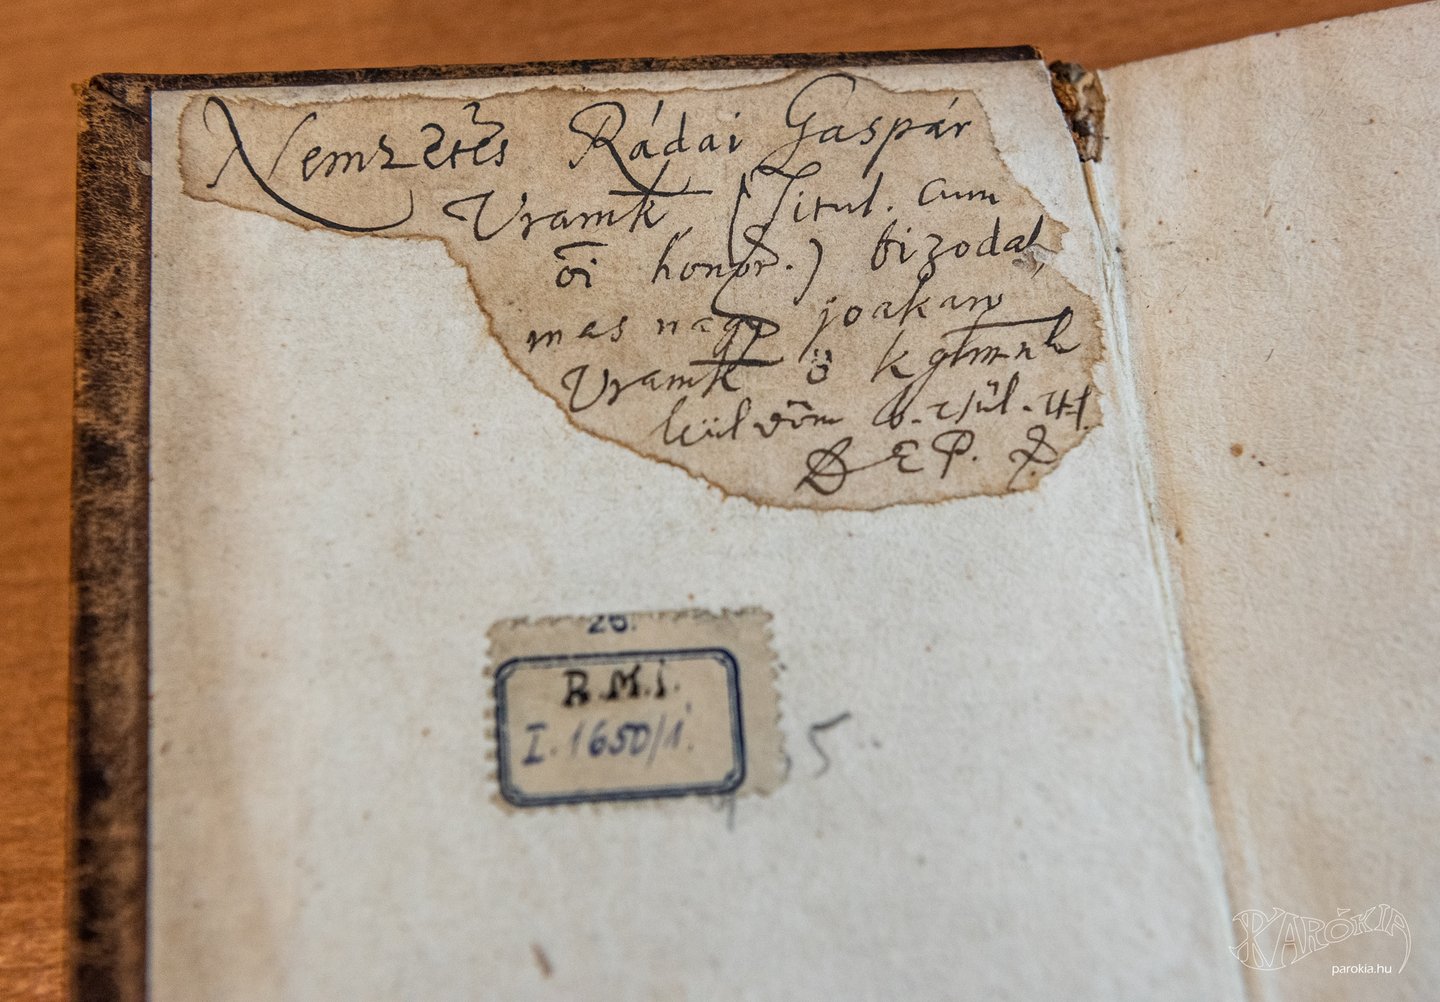 Nemzetes Rádai Gaspár
Uramk (Titul. cum
õi honor.) bizodal,
mas nagy joakaro
Uramk ö kglmnk
küldöm
D E P.
26.
R.M.I.
I. 1650/1.
5
PARÓKIA
parokia.hu